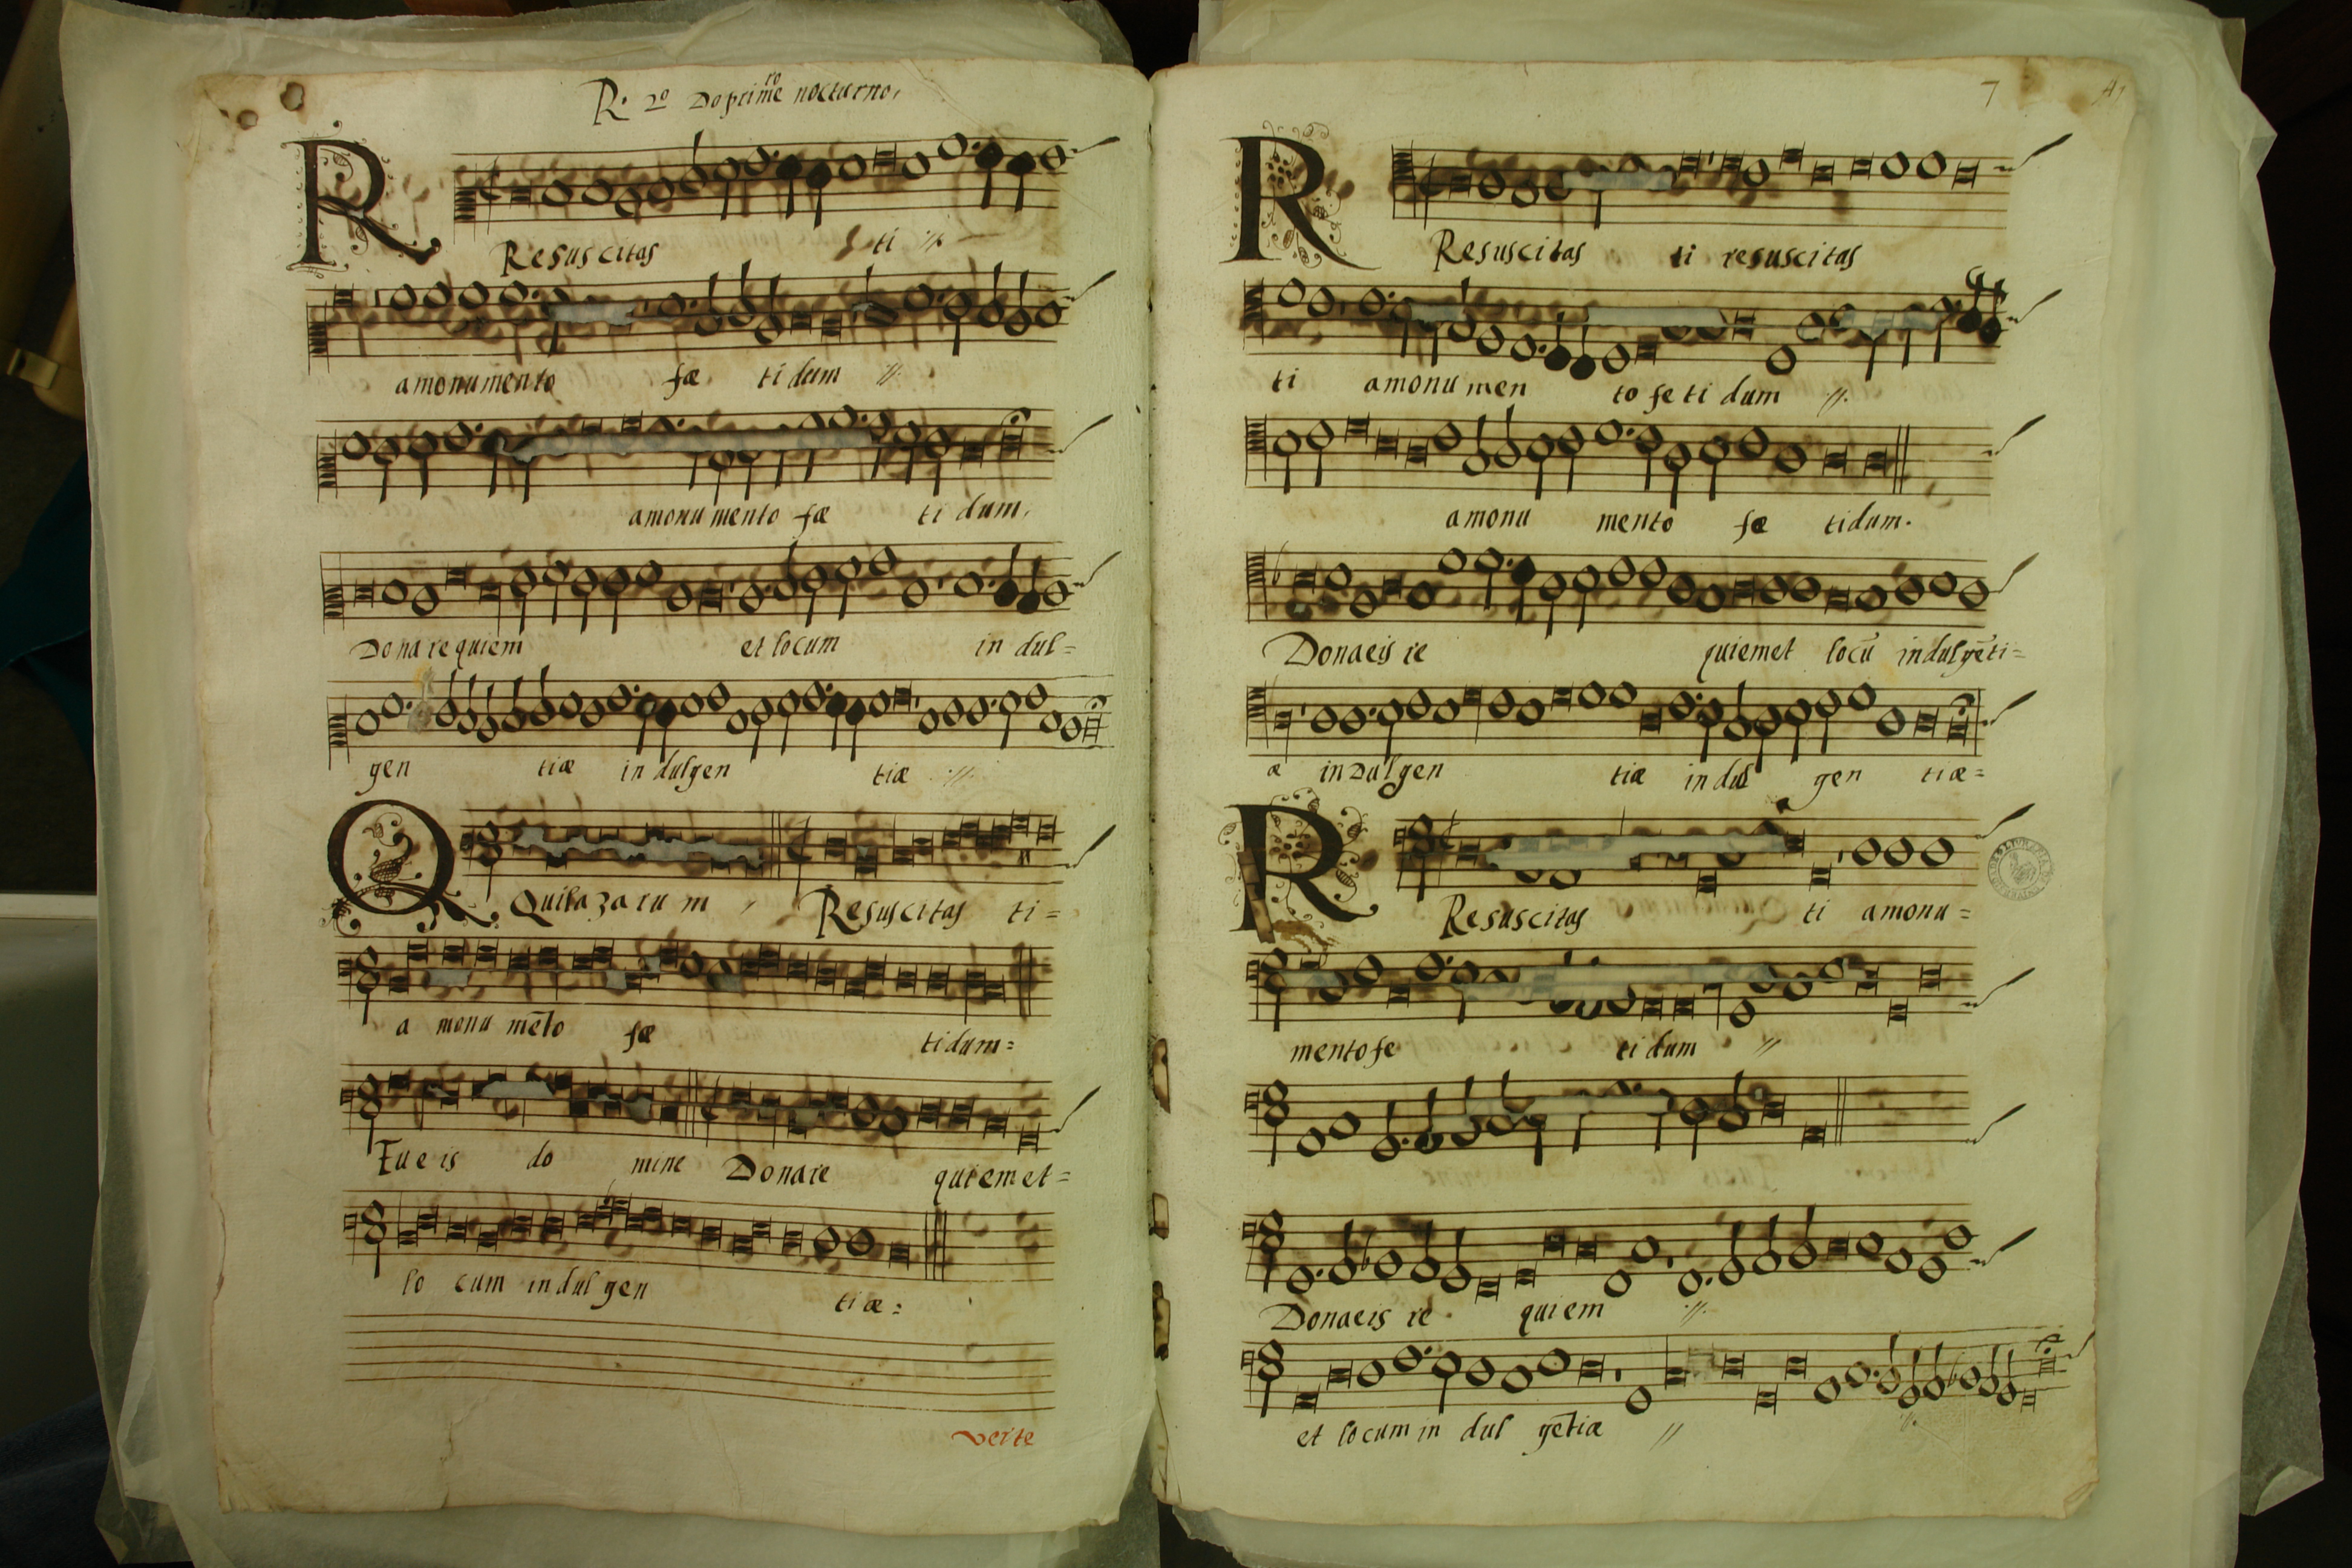 R. 2º Do primro nocturno,
R
Resuscitas ti //
amonumento fæ tidum //.
amonu mento fæ ti dum,
Dona requiem et locum in dul=
gen tiæ in dulgen tiæ .//.
Q
Quilazaru m , Resuscitas ti=
a monu mēto fæ tidum=
Tu eis do mine Donare quiemet=
lo cum indul gen tiæ:
verte
7
R
Resuscitas ti resuscitas
ti amonu men to fe ti dum .//.
amonu mento fæ tidum.
Donaeis re quiemet locū indulgēti=
æ indulgen tiæ indul gen tiæ=
R
Resuscitas ti amonu=
mentofe ti dum //
Donaeis re quiem .//.
et locum in dul gētiæ // .//.